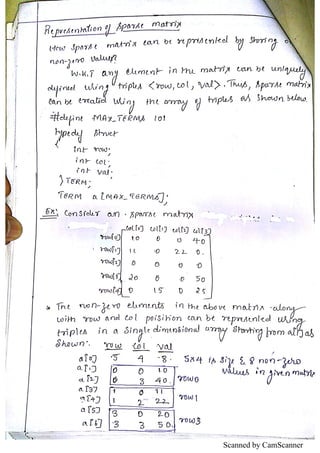 Representation of sparse matrix
How sparse matrix can be represented by storing
non-zero values?
W.K.T any element in the matrix can be uniquely
defined using triples <row, col, val>. Thus, sparse matrix
can be created using the array of triples as shown below.
#define MAX_TERMS 101
typedef struct
{
int row;
int col;
int val;
} TERM;
TERM a[MAX_TERMS];
Ex: Consider an sparse matrix
col[0] col[1] col[2] col[3]
row[0] 10 0 0 40
row[1] 11 0 22 0
row[2] 0 0 0 0
row[3] 20 0 0 50
row[4] 0 15 0 25
The non-zero elements in the above matrix along
with row and col poisition can be represented using
triples in a single dimensional array starting from a[1] as
shown:
row col val
a[0] 5 4 8 5x4 is size & 8 non-zero
a[1] 0 0 10 values in given matrix
a[2] 0 3 40 row0
a[3] 1 0 11
a[4] 1 2 22 row1
a[5] 3 0 20
a[6] 3 3 50 row3
Scanned by CamScanner